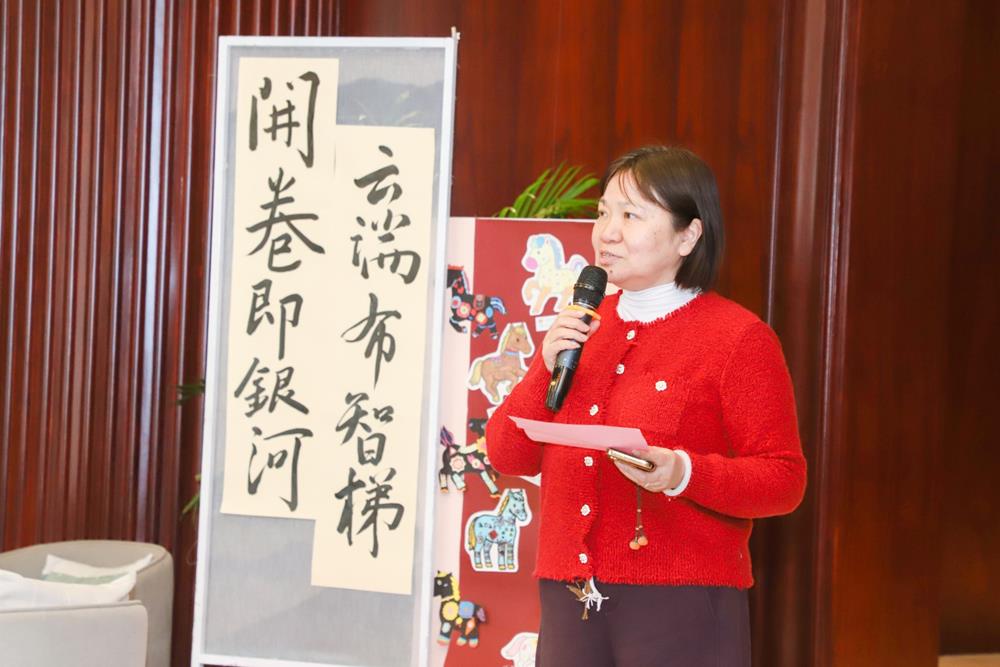 云端布智梯
開卷即銀河